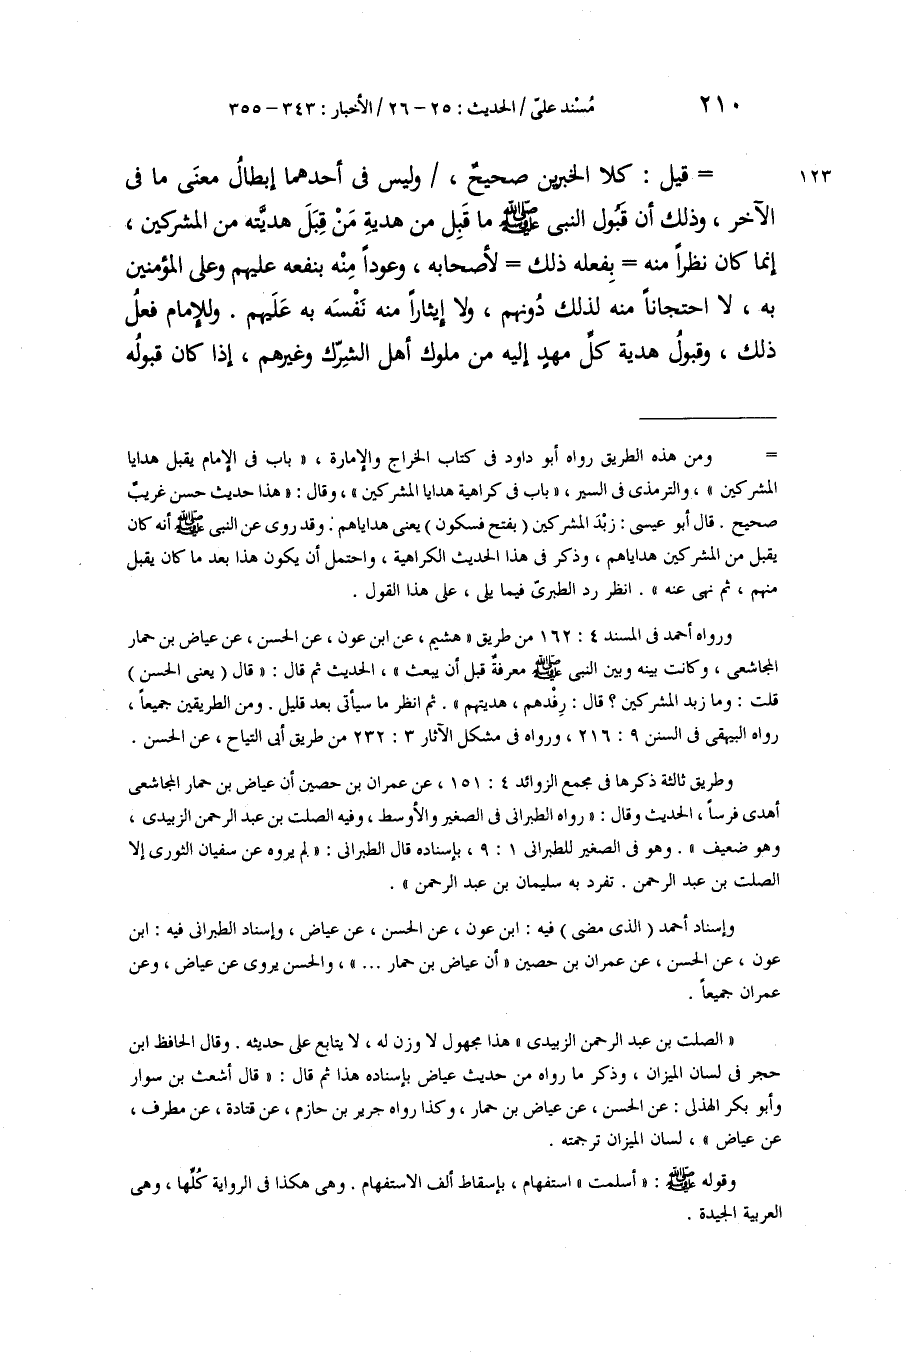 ٢١٠ مُسْند علىّ / الحديث : ٢٥ - ٢٦ / الأخبار : ٣٤٣ - ٣٥٥
١٢٣ = قيل : كلا الخبرين صحيحٌ ، / وليس فى أحدهما إبطالُ معنَى ما فى
الآخر ، وذلك أن قَبُول النبى ﷺ ما قَبِل من هديةِ مَنْ قِبَلَ هديَّته من المشركين ،
إنما كان نظراً منه = بِفعله ذلك = لأصحابه ، وعوداً مِنْه بنفعه عليهم وعلى المؤمنين
به ، لا احتجاناً منه لذلك دُونهم ، ولا إيثاراً منه نَفْسَه به عَلَيهم . وللإمام فعلُ
ذلك ، وقبولُ هدية كلِّ مهدٍ إليه من ملوك أهل الشِرّك وغيرهم ، إذا كان قبولُه
= ومن هذه الطريق رواه أبو داود فى كتاب الخراج والإمارة ، « باب فى الإمام يقبل هدايا
المشركين » ، والترمذى فى السير ، « باب فى كراهية هدايا المشركين » ، وقال : « هذا حديث حسن غريبٌ
صحيح . قال أبو عيسى : زبْدَ المشركين ( بفتح فسكون ) يعنى هداياهم . وقد روى عن النبى ﷺ أنه كان
يقبل من المشركين هداياهم ، وذكر فى هذا الحديث الكراهية ، واحتمل أن يكون هذا بعد ما كان يقبل
منهم ، ثم نهى عنه » . انظر رد الطبرىّ فيما يلى ، على هذا القول .
ورواه أحمد فى المسند ٤ : ١٦٢ من طريق « هشيم ، عن ابن عون ، عن الحسن ، عن عياض بن حمار
المجاشعى ، وكانت بينه وبين النبى ﷺ معرفةٌ قبل أن يبعث » ، الحديث ثم قال : « قال ( يعنى الحسن )
قلت : وما زبد المشركين ؟ قال : رِفْدهم ، هديتهم » . ثم انظر ما سيأتى بعد قليل . ومن الطريقين جميعاً ،
رواه البيهقى فى السنن ٩ : ٢١٦ ، ورواه فى مشكل الآثار ٣ : ٢٣٢ من طريق أبى التياح ، عن الحسن .
وطريق ثالثة ذكرها فى مجمع الزوائد ٤ : ١٥١ ، عن عمران بن حصين أن عياض بن حمار المجاشعى
أهدى فرساً ، الحديث وقال : « رواه الطبرانى فى الصغير والأوسط ، وفيه الصلت بن عبد الرحمن الزبيدى ،
وهو ضعيف » . وهو فى الصغير للطبرانى ١ : ٩ ، بإسناده قال الطبرانى : « لم يروه عن سفيان الثورى إلا
الصلت بن عبد الرحمن . تفرد به سليمان بن عبد الرحمن » .
وإسناد أحمد ( الذى مضى ) فيه : ابن عون ، عن الحسن ، عن عياض ، وإسناد الطبرانى فيه : ابن
عون ، عن الحسن ، عن عمران بن حصين « أن عياض بن حمار ... » ، والحسن يروى عن عياض ، وعن
عمران جميعاً .
« الصلت بن عبد الرحمن الزبيدى » هذا مجهول لا وزن له ، لا يتابع على حديثه . وقال الحافظ ابن
حجر فى لسان الميزان ، وذكر ما رواه من حديث عياض بإسناده هذا ثم قال : « قال أشعث بن سوار
وأبو بكر الهذلى : عن الحسن ، عن عياض بن حمار ، وكذا رواه جرير بن حازم ، عن قتادة ، عن مطرف ،
عن عياض » ، لسان الميزان ترجمته .
وقوله ﷺ : « أسلمت » استفهام ، بإسقاط ألف الاستفهام . وهى هكذا فى الرواية كُلِّها ، وهى
العربية الجيدة .